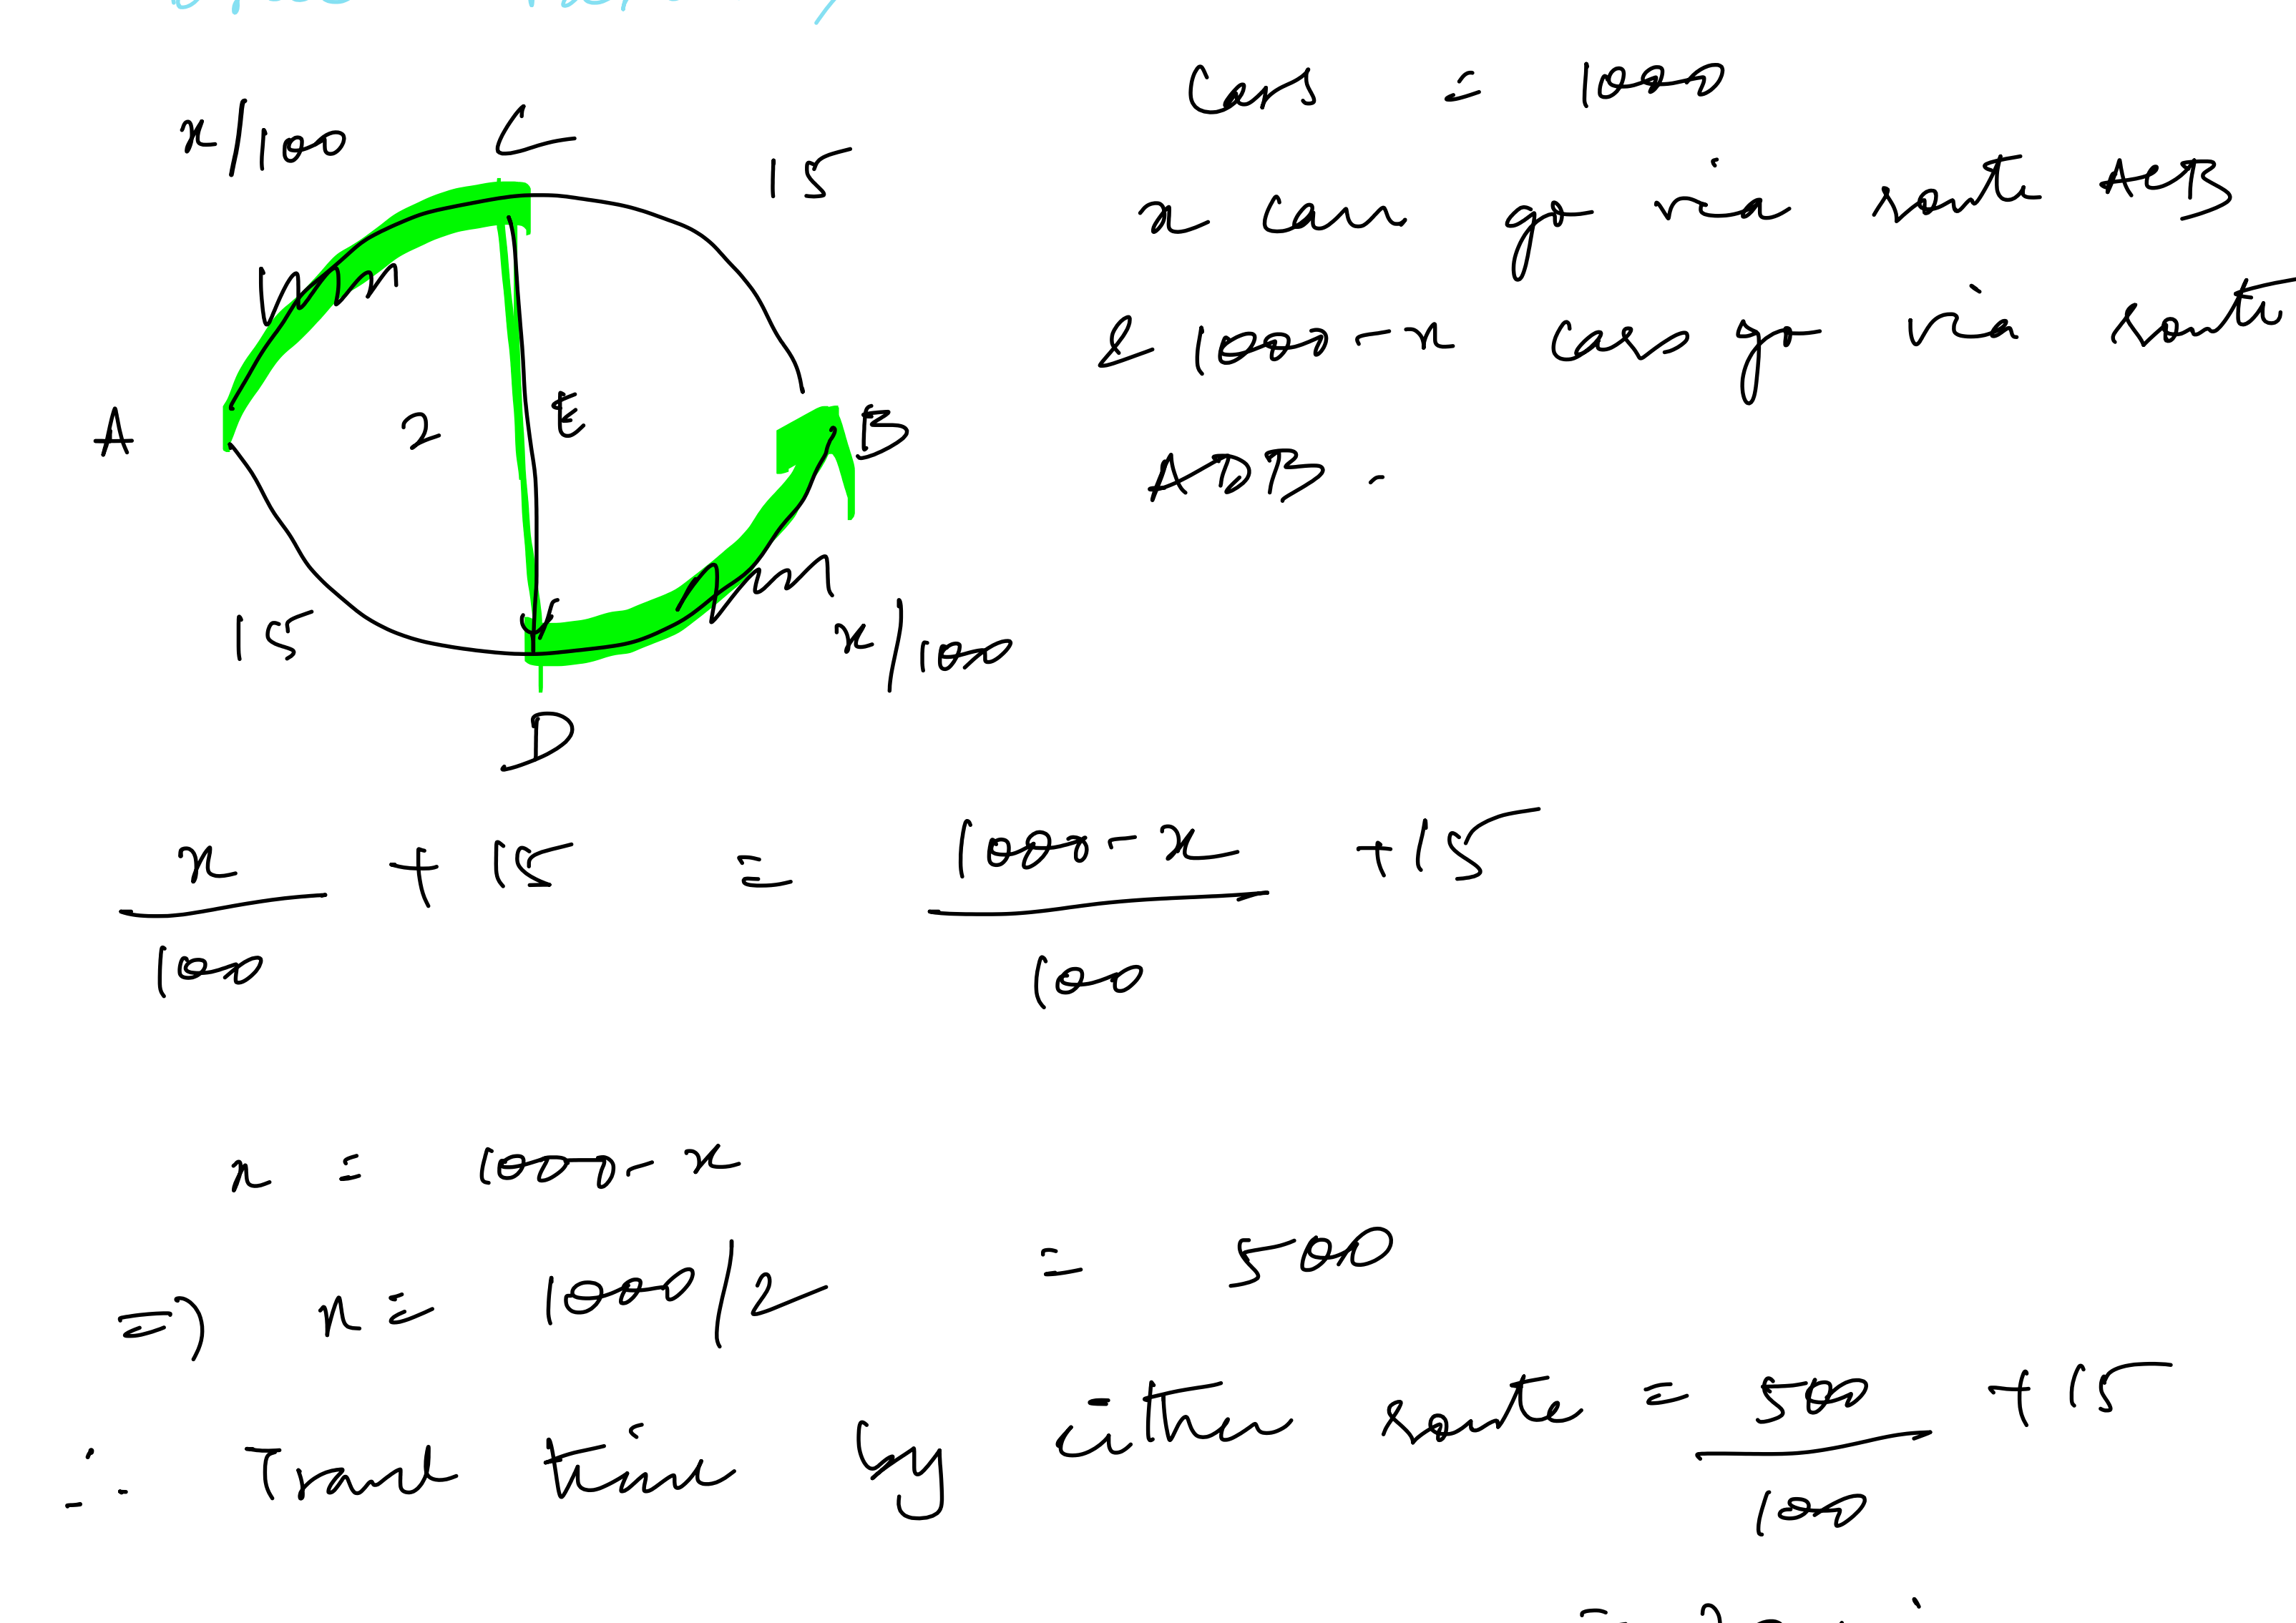 x/100 C 15
A 2 E B
15 x/100
D
Cars = 1000
x cars go via route ACB
& 1000-x cars go via route
ADB.
x/100 + 15 = 1000-x/100 + 15
x = 1000-x
=> x = 1000/2 = 500
∴ Travel time by either route = 500/100 + 15